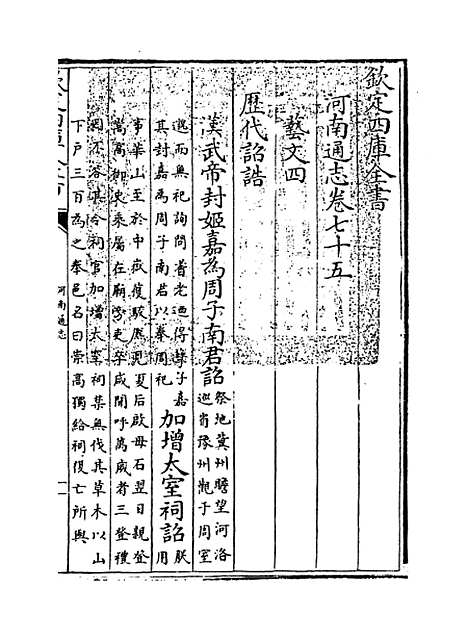 欽定四庫全書
河南通志卷七十五
藝文四
歷代詔誥
漢武帝封姬嘉為周子南君詔
祭地冀州瞻望河洛
巡省豫州觀于周室
邈而無祀詢問耆老迺得孽子嘉
其封嘉為周子南君以奉周祀
加增太室祠詔
朕
用
事華山至於中嶽獲駮麃見夏后啟母石翌日親登
嵩高御史乘屬在廟旁吏卒咸聞呼萬歲者三登禮
罔不答其令祠官加增太室祠禁無伐其草木以山
下戶三百為之奉邑名曰崇高獨給祠復亡所與
河南通志
一